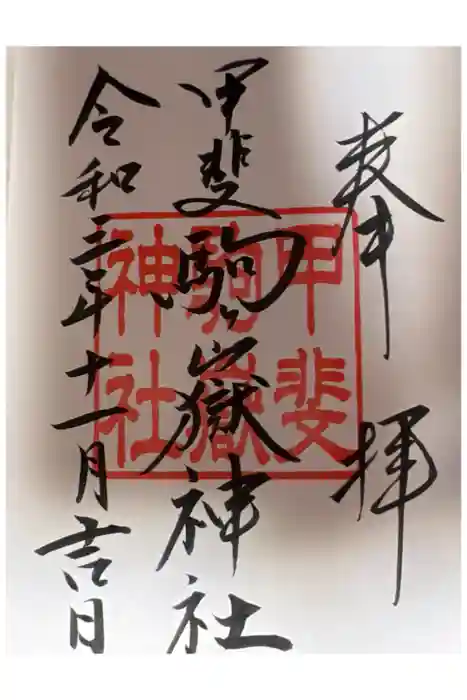 奉拝
甲斐駒ヶ嶽神社
甲斐駒嶽神社
令和三年十一月吉日